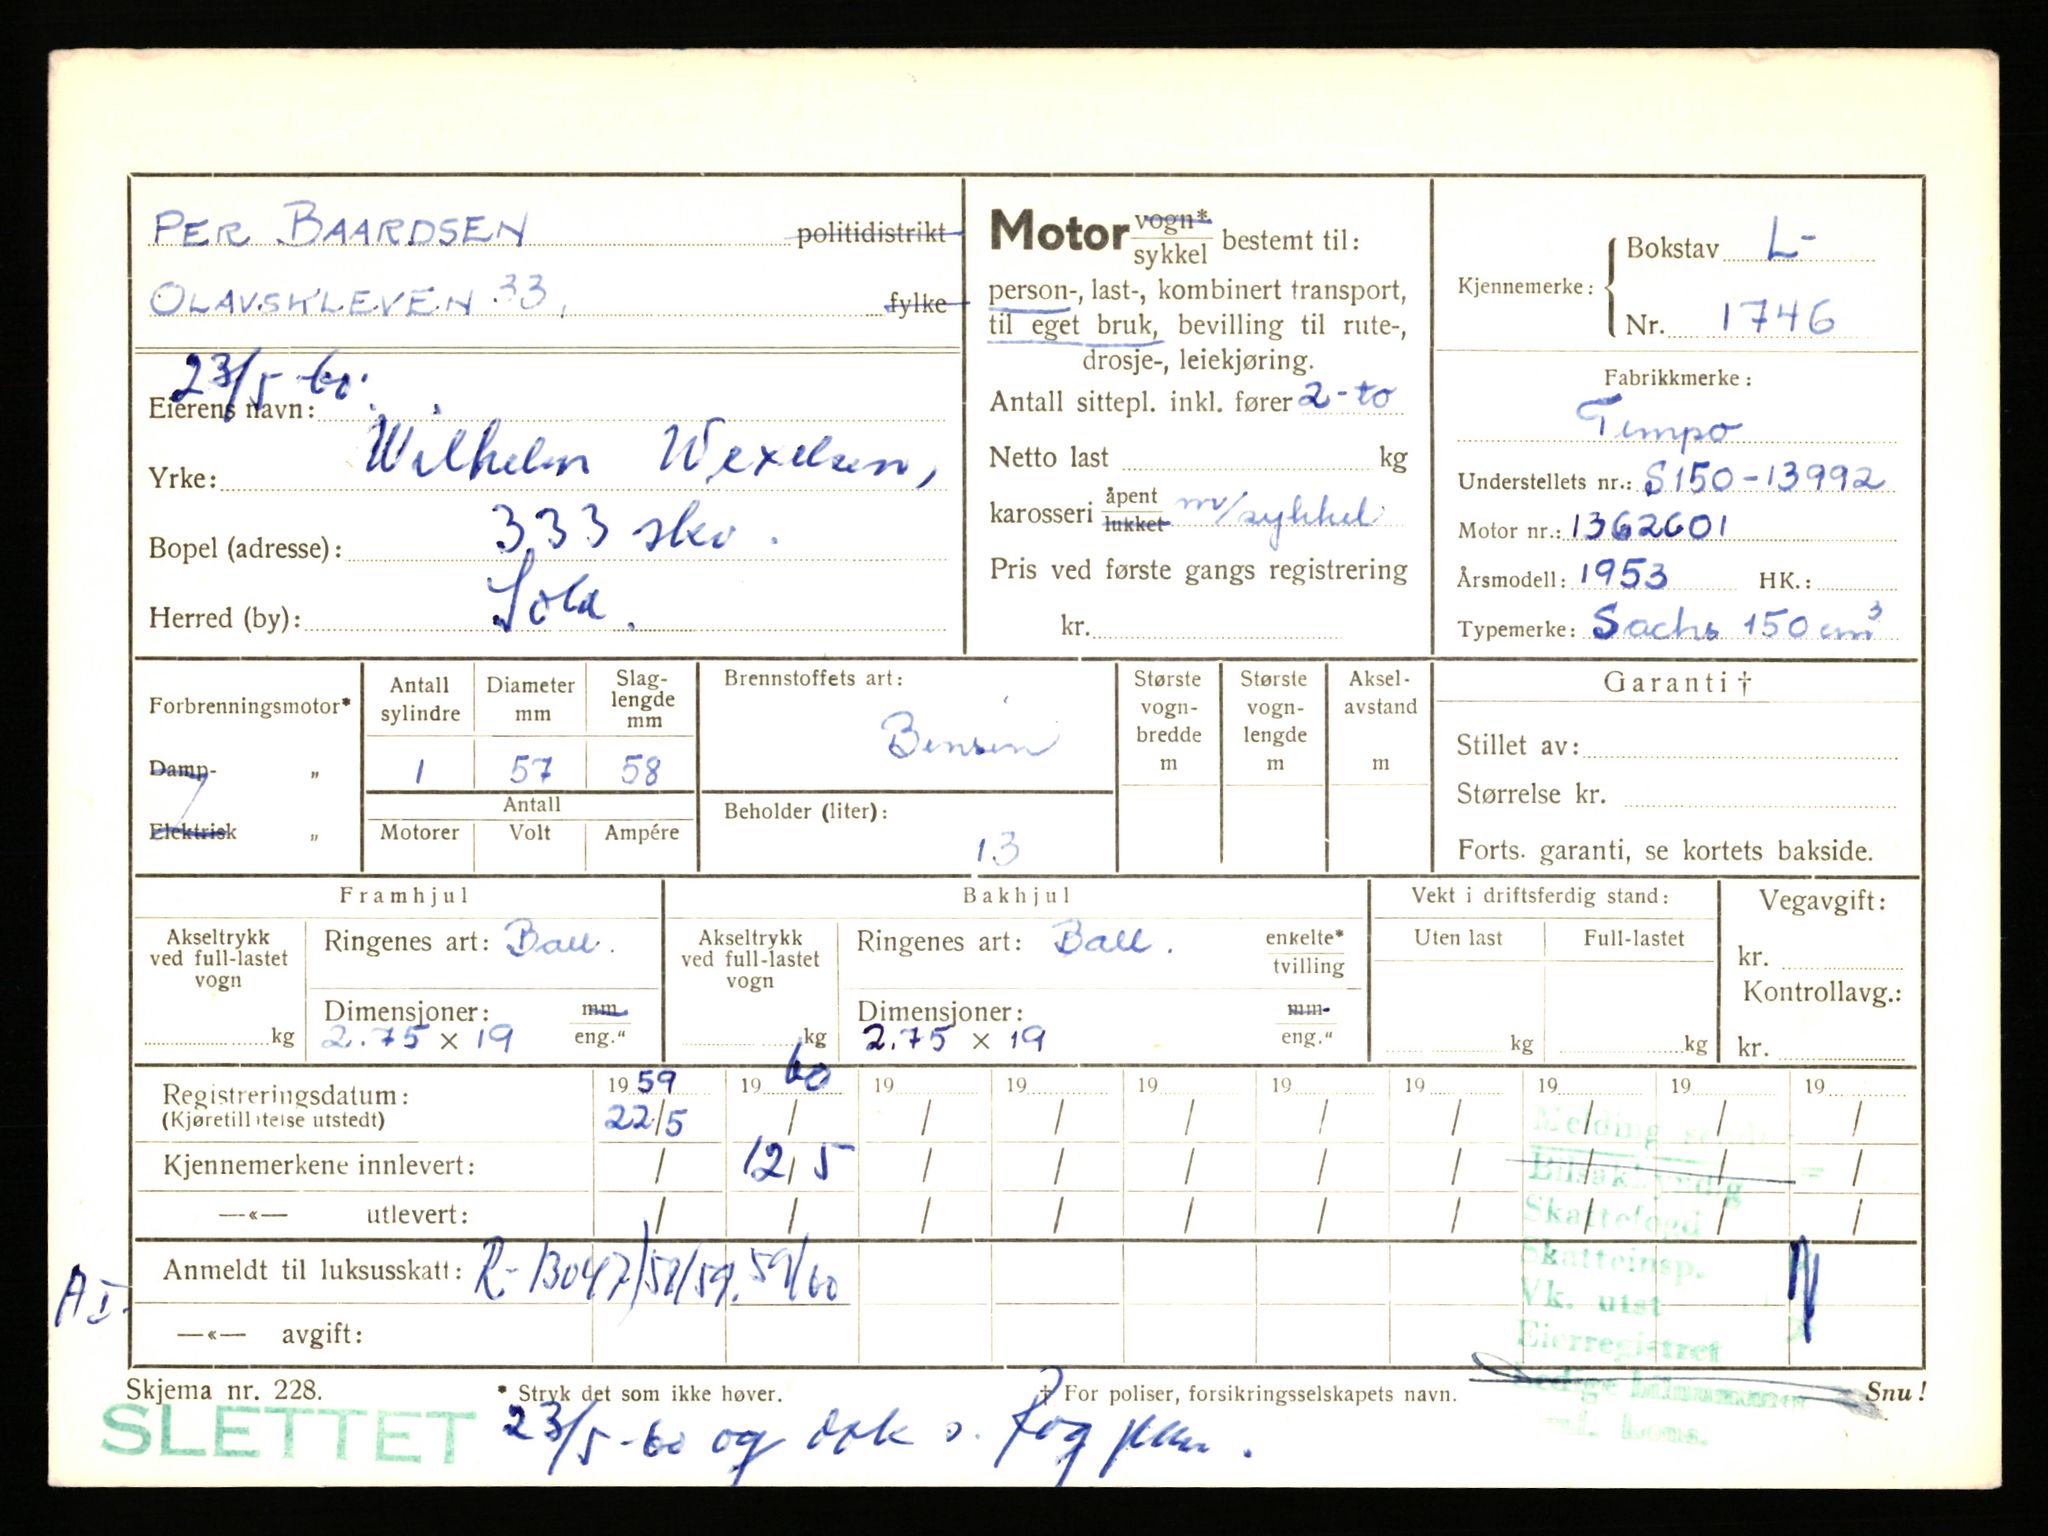 PER BAARDSEN politidistrikt
OLAVSKLEVEN 33, fylke
23/5-60.
Eierens navn:
Wilhelm Wexelsen,
Yrke:
333 skv.
Bopel (adresse):
Sola.
Herred (by):
Motor vogn*/sykkel bestemt til:
person-, last-, kombinert transport,
til eget bruk, bevilling til rute-,
drosje-, leiekjøring.
Antall sittepl. inkl. fører 2-to
Netto last kg
karosseri åpent/lukket m/sykkel
Pris ved første gangs registrering
kr.
Kjennemerke: Bokstav L-
Nr. 1746
Fabrikkmerke:
Tempo
Understellets nr.: S150-13992
Motor nr.: 1362601
Årsmodell: 1953 HK.:
Typemerke: Sachs 150 cm³
Forbrenningsmotor*
Damp- „
Elektrisk „
Antall sylindre
1
Diameter mm
57
Slaglengde mm
58
Antall
Motorer Volt Ampére
Brennstoffets art:
Bensin
Beholder (liter):
13
Største vognbredde m
Største vognlengde m
Akselavstand m
Garanti †
Stillet av:
Størrelse kr.
Forts. garanti, se kortets bakside.
Framhjul
Akseltrykk ved full-lastet vogn
kg
Ringenes art: Ball.
Dimensjoner: mm/eng."
2.75 x 19
Bakhjul
Akseltrykk ved full-lastet vogn
kg
Ringenes art: Ball. enkelte*/tvilling
Dimensjoner: mm/eng."
2.75 x 19
Vekt i driftsferdig stand:
Uten last Full-lastet
kg kg
Vegavgift:
kr.
Kontrollavg.:
kr.
Registreringsdatum: 19 59 19 60 19 19 19 19 19 19 19 19
(Kjøretillatelse utstedt) 22/5 / / / / / / / / /
Kjennemerkene innlevert: / 12/5 / / / / / / / /
—«— utlevert: / / / / / / / / / /
Anmeldt til luksusskatt: R-13047/58/59. 59/60
A I
—«— avgift:
Melding sendt:
Bilsakkyndig
Skattefogd
Skatteinsp.
Vk. utst
Eierregistret
Ledige bilnummer
Skjema nr. 228. * Stryk det som ikke høver. † For poliser, forsikringsselskapets navn. Snu!
SLETTET
23/5-60 og